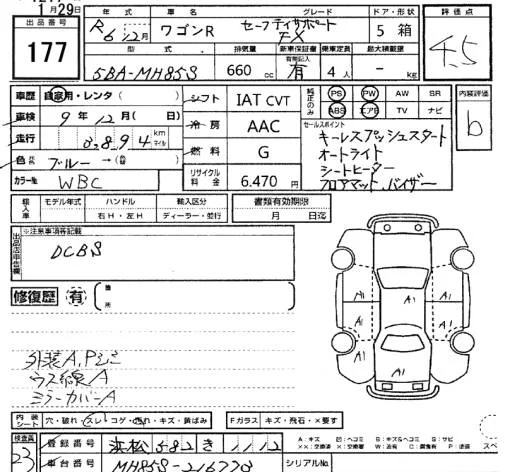 1月29日
出品番号
177
年式 車名 グレード ドア・形状
R6年12月 ワゴンR セーフティサポート FX 5 箱
評価点
4.5
型式 排気量 新車保証書 乗車定員 最大積載量
有無記入
5BA-MH85S 660 cc 有 4人 - kg
車歴 自家用・レンタ( )
車検 9年12月( 日)
走行 km マイル
色 ブルー → (
カラー№ WBC
シフト IAT CVT
冷房 AAC
燃料 G
リサイクル料金 6.470 円
純正のみ
PS PW AW SR
ABS エアB TV ナビ
内装評価
b
セールスポイント
キーレスプッシュスタート
オートライト
シートヒーター
フロアマット、バイザー
輸入車 モデル年式 ハンドル 輸入区分 書類有効期限
年 右H・左H ディーラー・並行 月 日迄
出品店申告欄
※注意事項等記載
DCBS
修復歴 有 箇所
外装A,Pジミ
ウス線A
ミラーカバーA
A1
A1
A1
A1
A1
A1
内装シート 穴・破れ・スレ・コゲ・汚れ・キズ・黄ばみ Fガラス キズ・飛石・×要す
検査員
23
登録番号 浜松 582 き 1112
車台番号 MH85S-216770
シリアル№
A:キズ U:凹ヘコミ B:キズ&ヘコミ S:サビ
××:交換済 ×:交換要 W:波有 C:腐食有 P:塗装